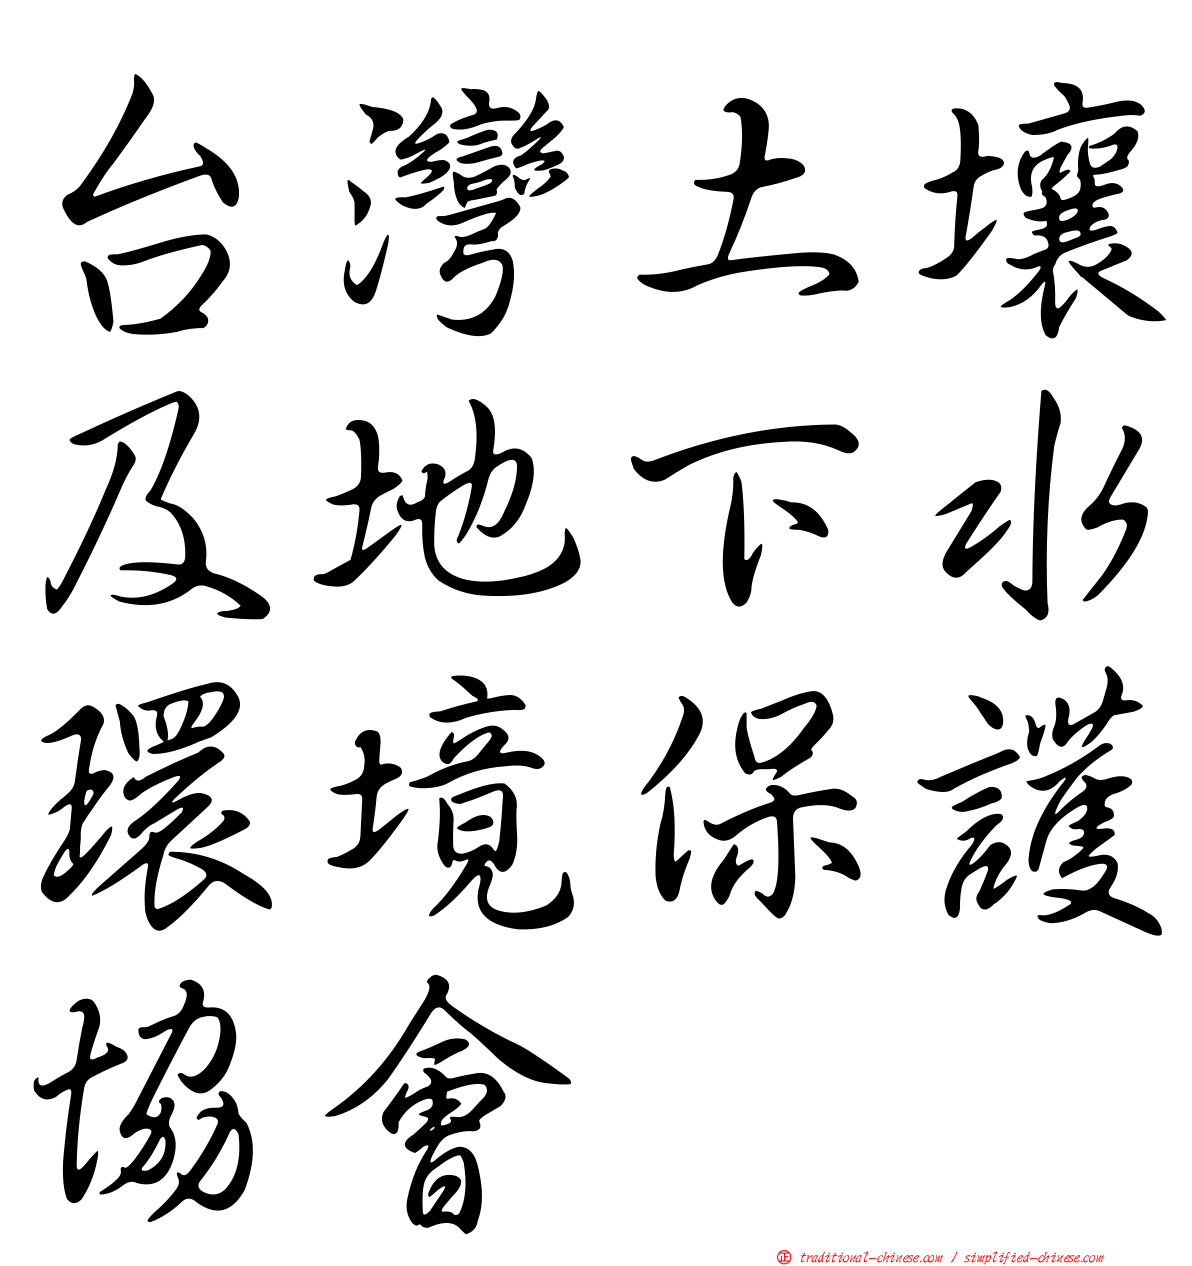 台灣土壤
及地下水
環境保護
協會
㊣ traditional-chinese.com / simplified-chinese.com